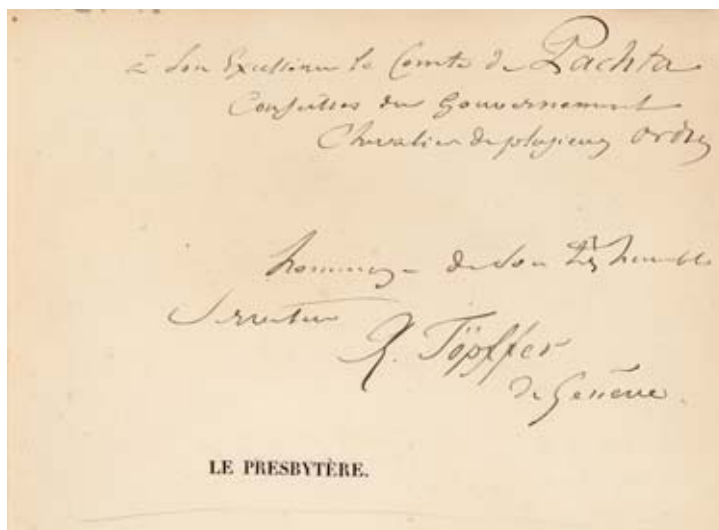 à Son Excellence le Comte de Pachta
Conseiller du Gouvernement
Chevalier de plusieurs ordres
hommage de son très humble
Serviteur
R. Töpffer
de Genève.
LE PRESBYTÈRE.